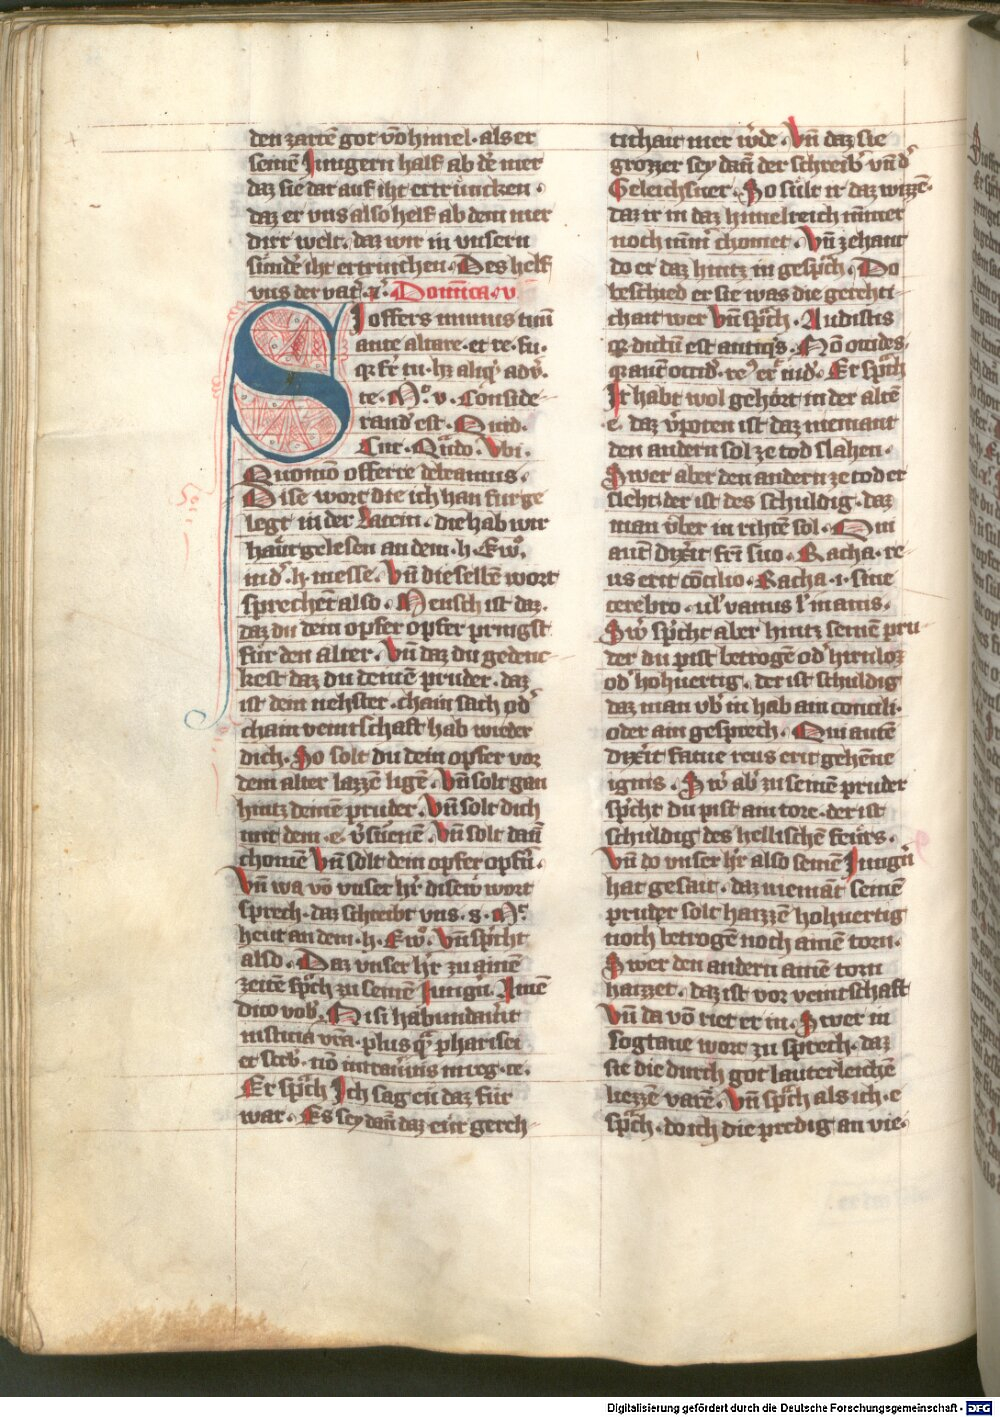 den zartē got vō himel · als er
seinē Jungern half ab dē mer
daz sie dar auf iht ertrūncken ·
daz er vns also helf ab dem mer
dirr welt · daz wir in vnsern
sūndē iht ertrinchen · Des helf
vns der vat̾ · ⁊ · Domīca · v
SJ offers munus tuū
ante altare · et re · fu ·
q̛ fr̄ tu · hȝ aliq̇ adv̾ ·
te · Mͦ · v · Conside-
randū est · Quid ·
Cur · Qn̄do · Vbi ·
Quomō offerre debeamus ·
Dise wort die ich han fur ge
legt in der Latein · die hab wir
haūt gelesen an dem · h · Ewͦ ·
in d̾ · h · messe · Vn̄ die selbē wort
sprechēt also · Mensch ist daz ·
daz du dein opfer opfer pringst
für den alter · Vn̄ daz du geden-
kest daz du deinē pruder · daz
ist dein nehster · chain sach od̾
chain veintschaft hab wider
dich · So solt du dein opfer vor
dem alter lazzē ligē · Vn̄ solt gan
hintz deinē pruder · Vn̄ solt dich
mit dem · e · v̾sūenē · Vn̄ solt dan̄
chomē Vn̄ solt dein opfer opfn̄ ·
Vn̄ wa vō vnser hr̄ disew wort
sprech · daz schreibt vns · s · Mͦ
heut an dem · h · Ewͦ · Vn̄ sp̾cht
also · Daz vnser hr̄ zu ainē
zeitē sp̾ch zu seinē Jungn̄ · Amē
dico vob̾ · Nisi habundau̾it
iusticia vr̄a · plus q̄ pharisei
et scrib̾ · nō intrabitis in reg · ce ·
Er sp̾ch Jch sag eu daz für
war · Es sey dan̄ daz eur gerch-
tichait mer w̾de · Vn̄ daz sie
grozzer sey dan̄ der schreib̾ vn̄ d̾
Geleichsner · So sūlt ir daz wizzē ·
daz ir in daz himelreich nimer
noch nim̄ chomet · Vn̄ zehant
do er daz hintz in gesp̾ch · Do
beschied er sie was die gerehti-
chait wer Vn̄ sp̾ch · Audistis
q̛ dictū est antiq̾s · Nō occides ·
q̛ autē occid̾ · re⁹ er̄ iud̾ · Er sp̾ch
Jr habt wol gehört in der altē
· e · daz v̾poten ist daz niemant
den andern sol ze tod slahen ·
Swer aber den andern ze tod er
slecht · der ist des schuldig · daz
man v̾ber in rihtē sol · Qui
autē dix̾it fr̄i suo · Racha · re-
us erit cōcilio · Racha · i · sine
cerebro · ul̾ vanus l̾ inanis ·
Sw̾ sp̾cht aber hintz seinē pru-
der du pist betrogē od̾ hirnloz
od̾ hohuertig · der ist schuldig
daz man vb̾ in hab ain concili ·
oder ain gesprech · Qui autē
dix̾it fatue reus erit gehēne
ignis · Sw̾ ab̾ zu seinē pruder
sp̾cht du pist ain tore · der ist
schuldig des hellischē feürs ·
Vn̄ do vnser hr̄ also seinē Jungn̄
hat gesait · daz niemāt seinē
pruder solt haizzē hohuertig
noch betrogē noch ainē torn ·
Swer den andern ainē torn
haizzet · daz ist vor veintschaft
Vn̄ da vō riet er in · Swer in
sogtane wort zu sprech · daz
sie die durch got lauterleichē
liezzē varē · Vn̄ sp̾ch als ich · e
sp̾ch · do ich die predig an vie-
Digitalisierung gefördert durch die Deutsche Forschungsgemeinschaft - DFG